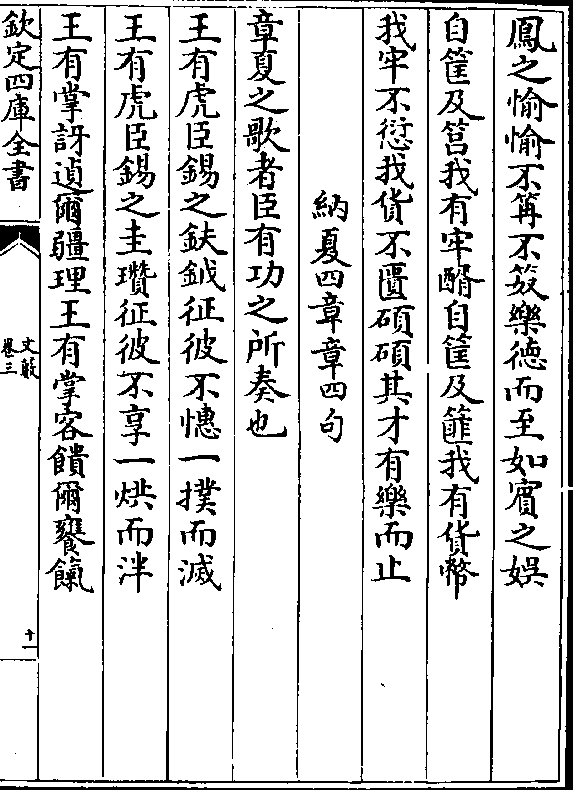 鳳之愉愉不籌不笯樂德而至如賓之娛
自筐及筥我有牢醑自筐及篚我有貨幣
我牢不愆我貨不匱碩碩其才有樂而止
納夏四章章四句
章夏之歌者臣有功之所奏也
王有虎臣錫之鈇鉞征彼不憓一撲而滅
王有虎臣錫之圭瓚征彼不享一烘而泮
王有掌訝逌爾疆理王有掌客饋爾饔餼
欽定四庫全書
文藪
卷三
十一